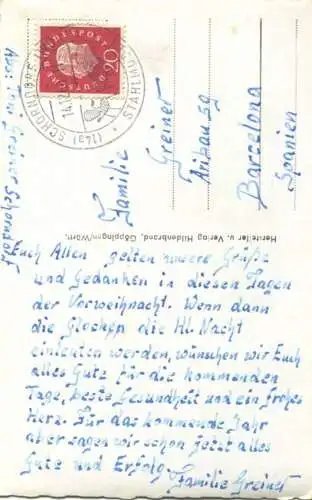 Abs: Fam. Greiner Schorndorf
DEUTSCHE BUNDESPOST
(14a) SCHORNDORF
STAHLMÖBEL
Familie
Greiner
Barcelona
Spanien
Hersteller u. Verlag Hildenbrand, Göppingen/Württ.
Euch Allen gelten unsere Grüße
und Gedanken in diesen Tagen
der Vorweihnacht. Wenn dann
die Glocken die Hl. Nacht
einleuten werden, wünschen wir Euch
alles Gute für die kommenden
Tage, beste Gesundheit und ein frohes
Herz. Für das kommende Jahr
aber sagen wir schon jetzt alles
Gute und Erfolg. Familie Greiner